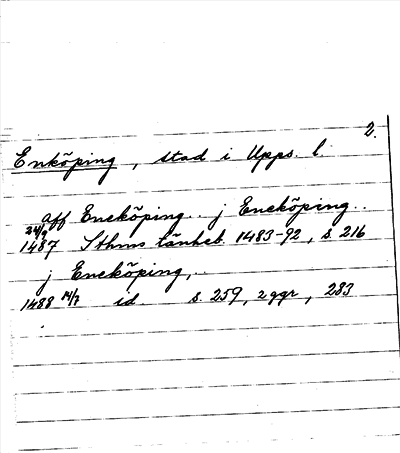 2.
Enköping, stad i Upps. l.
aff Eneköping.. j Eneköping..
24/9
1487 Sthms tänkeb. 1483-92, s. 216
j Eneköping,..
1488 14/7 id. s. 259, 2 ggr, 283